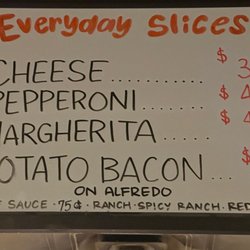 Everyday Slices
CHEESE.......... $ 3
PEPPERONI....... $ 4
MARGHERITA ..... $ 4
POTATO BACON... $
ON ALFREDO
SAUCE · 75¢ · RANCH · SPICY RANCH · RED